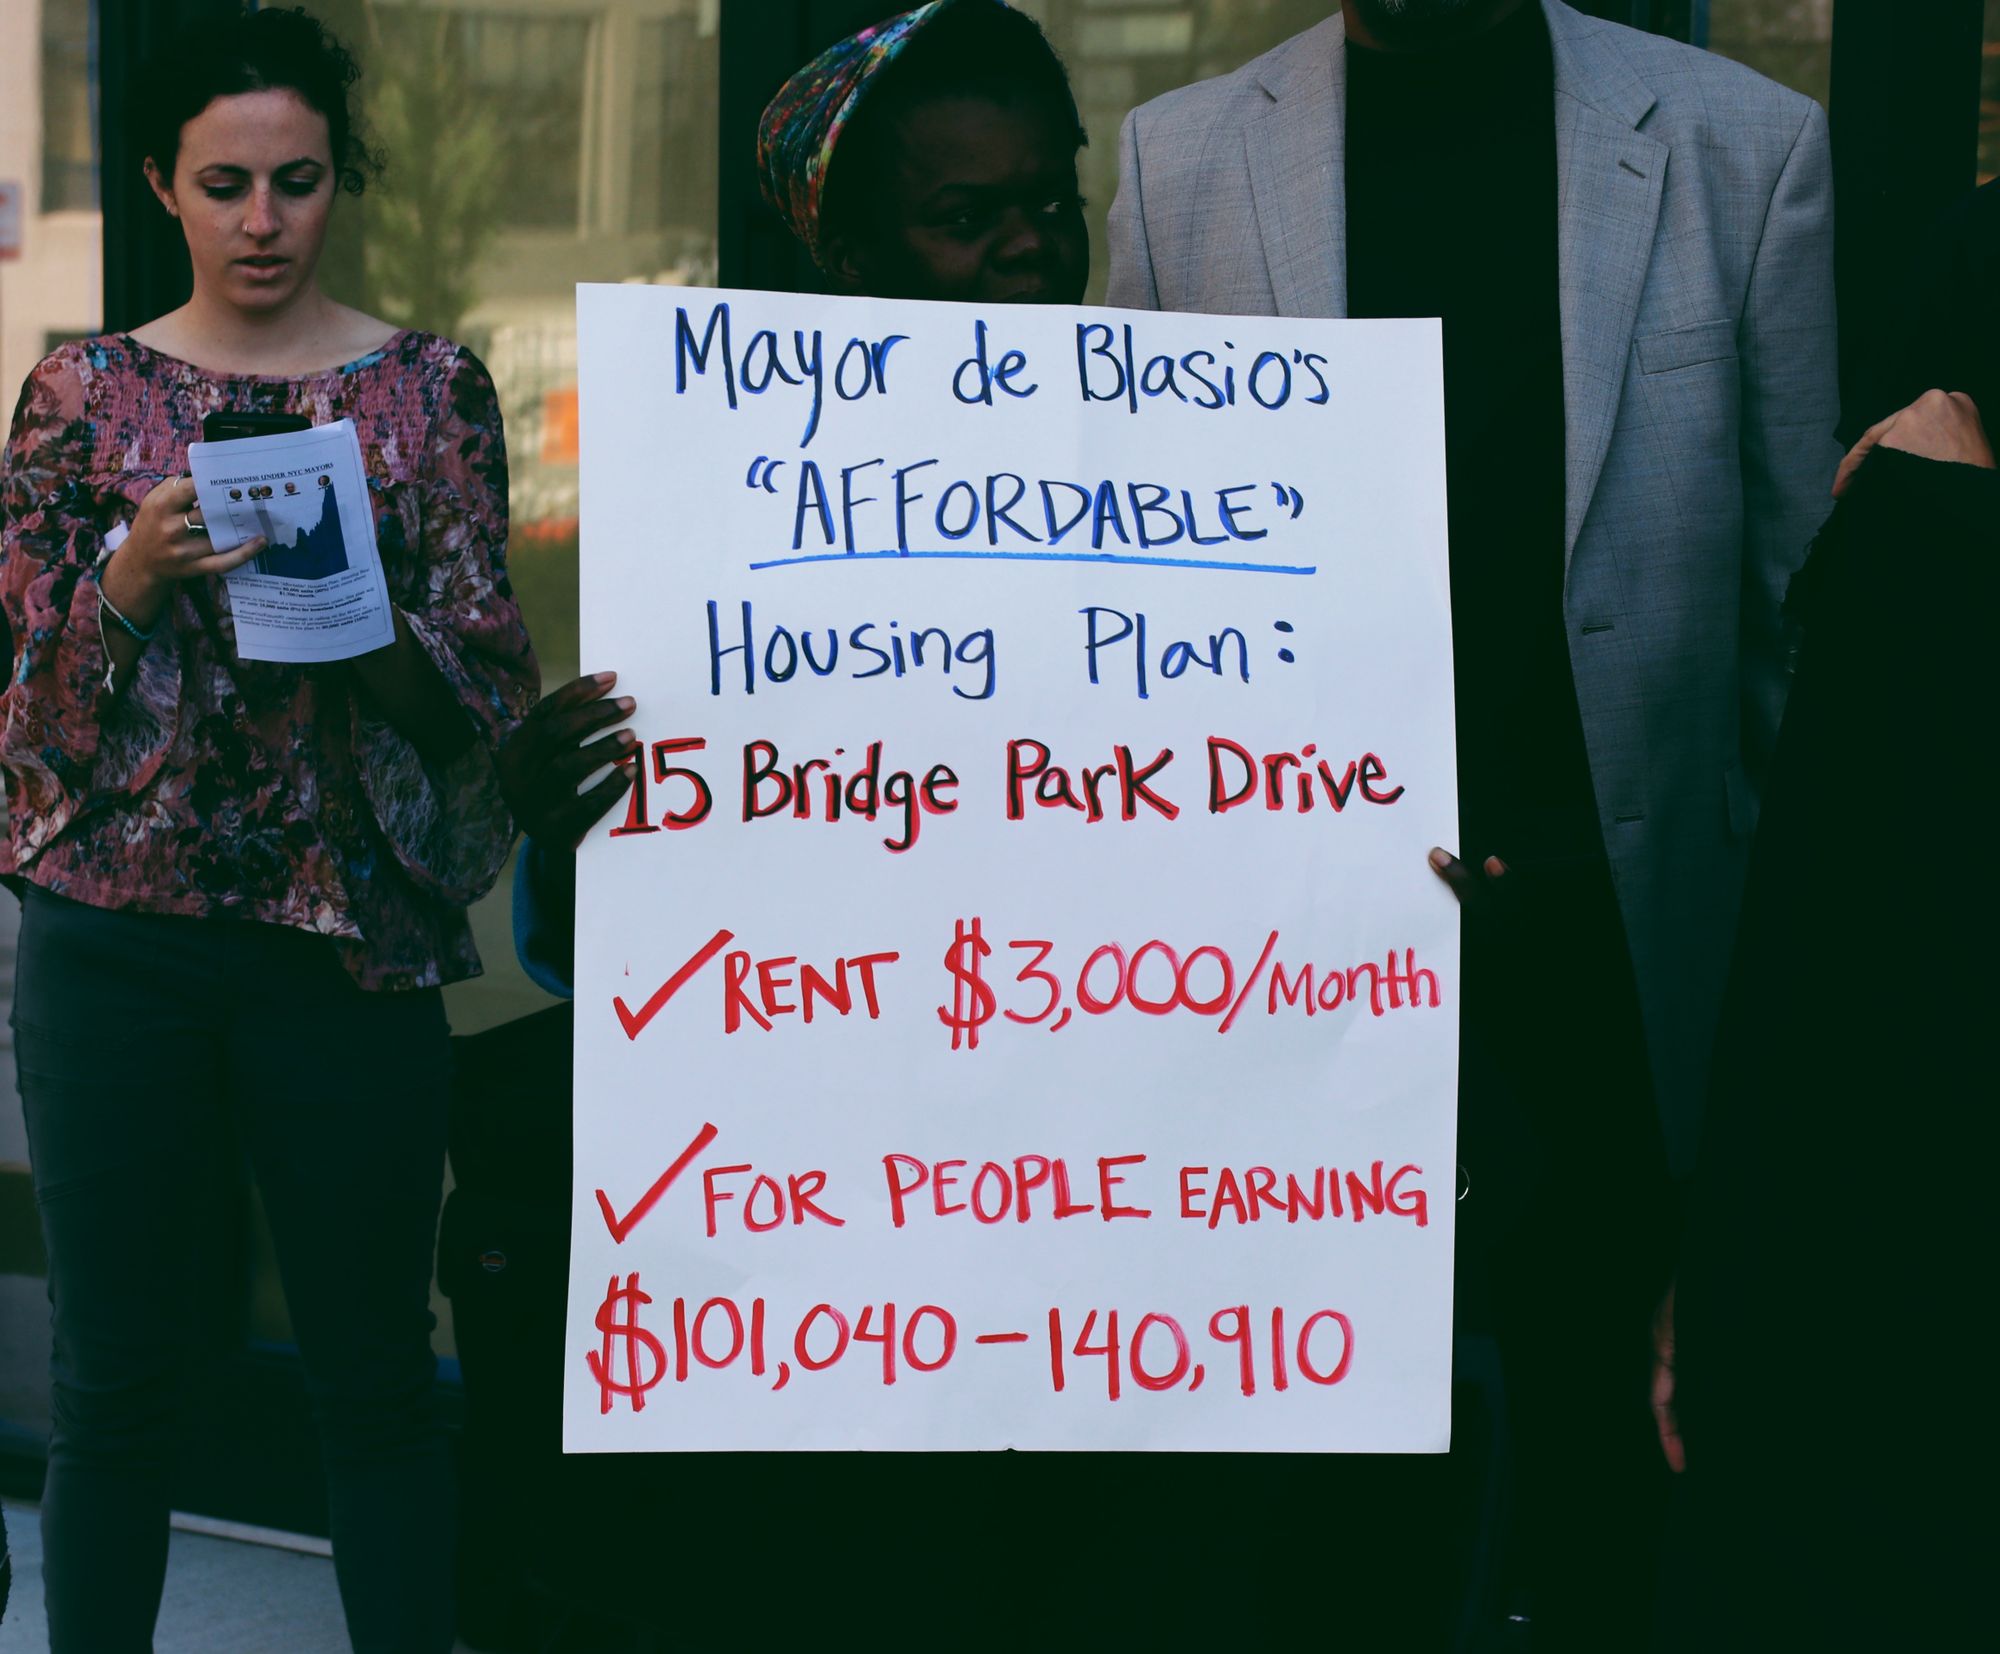 Mayor de Blasio's
"AFFORDABLE"
Housing Plan:
15 Bridge Park Drive
✓ RENT $3,000/Month
✓ FOR PEOPLE EARNING
$101,040 - 140,910
HOMELESSNESS UNDER NYC MAYORS